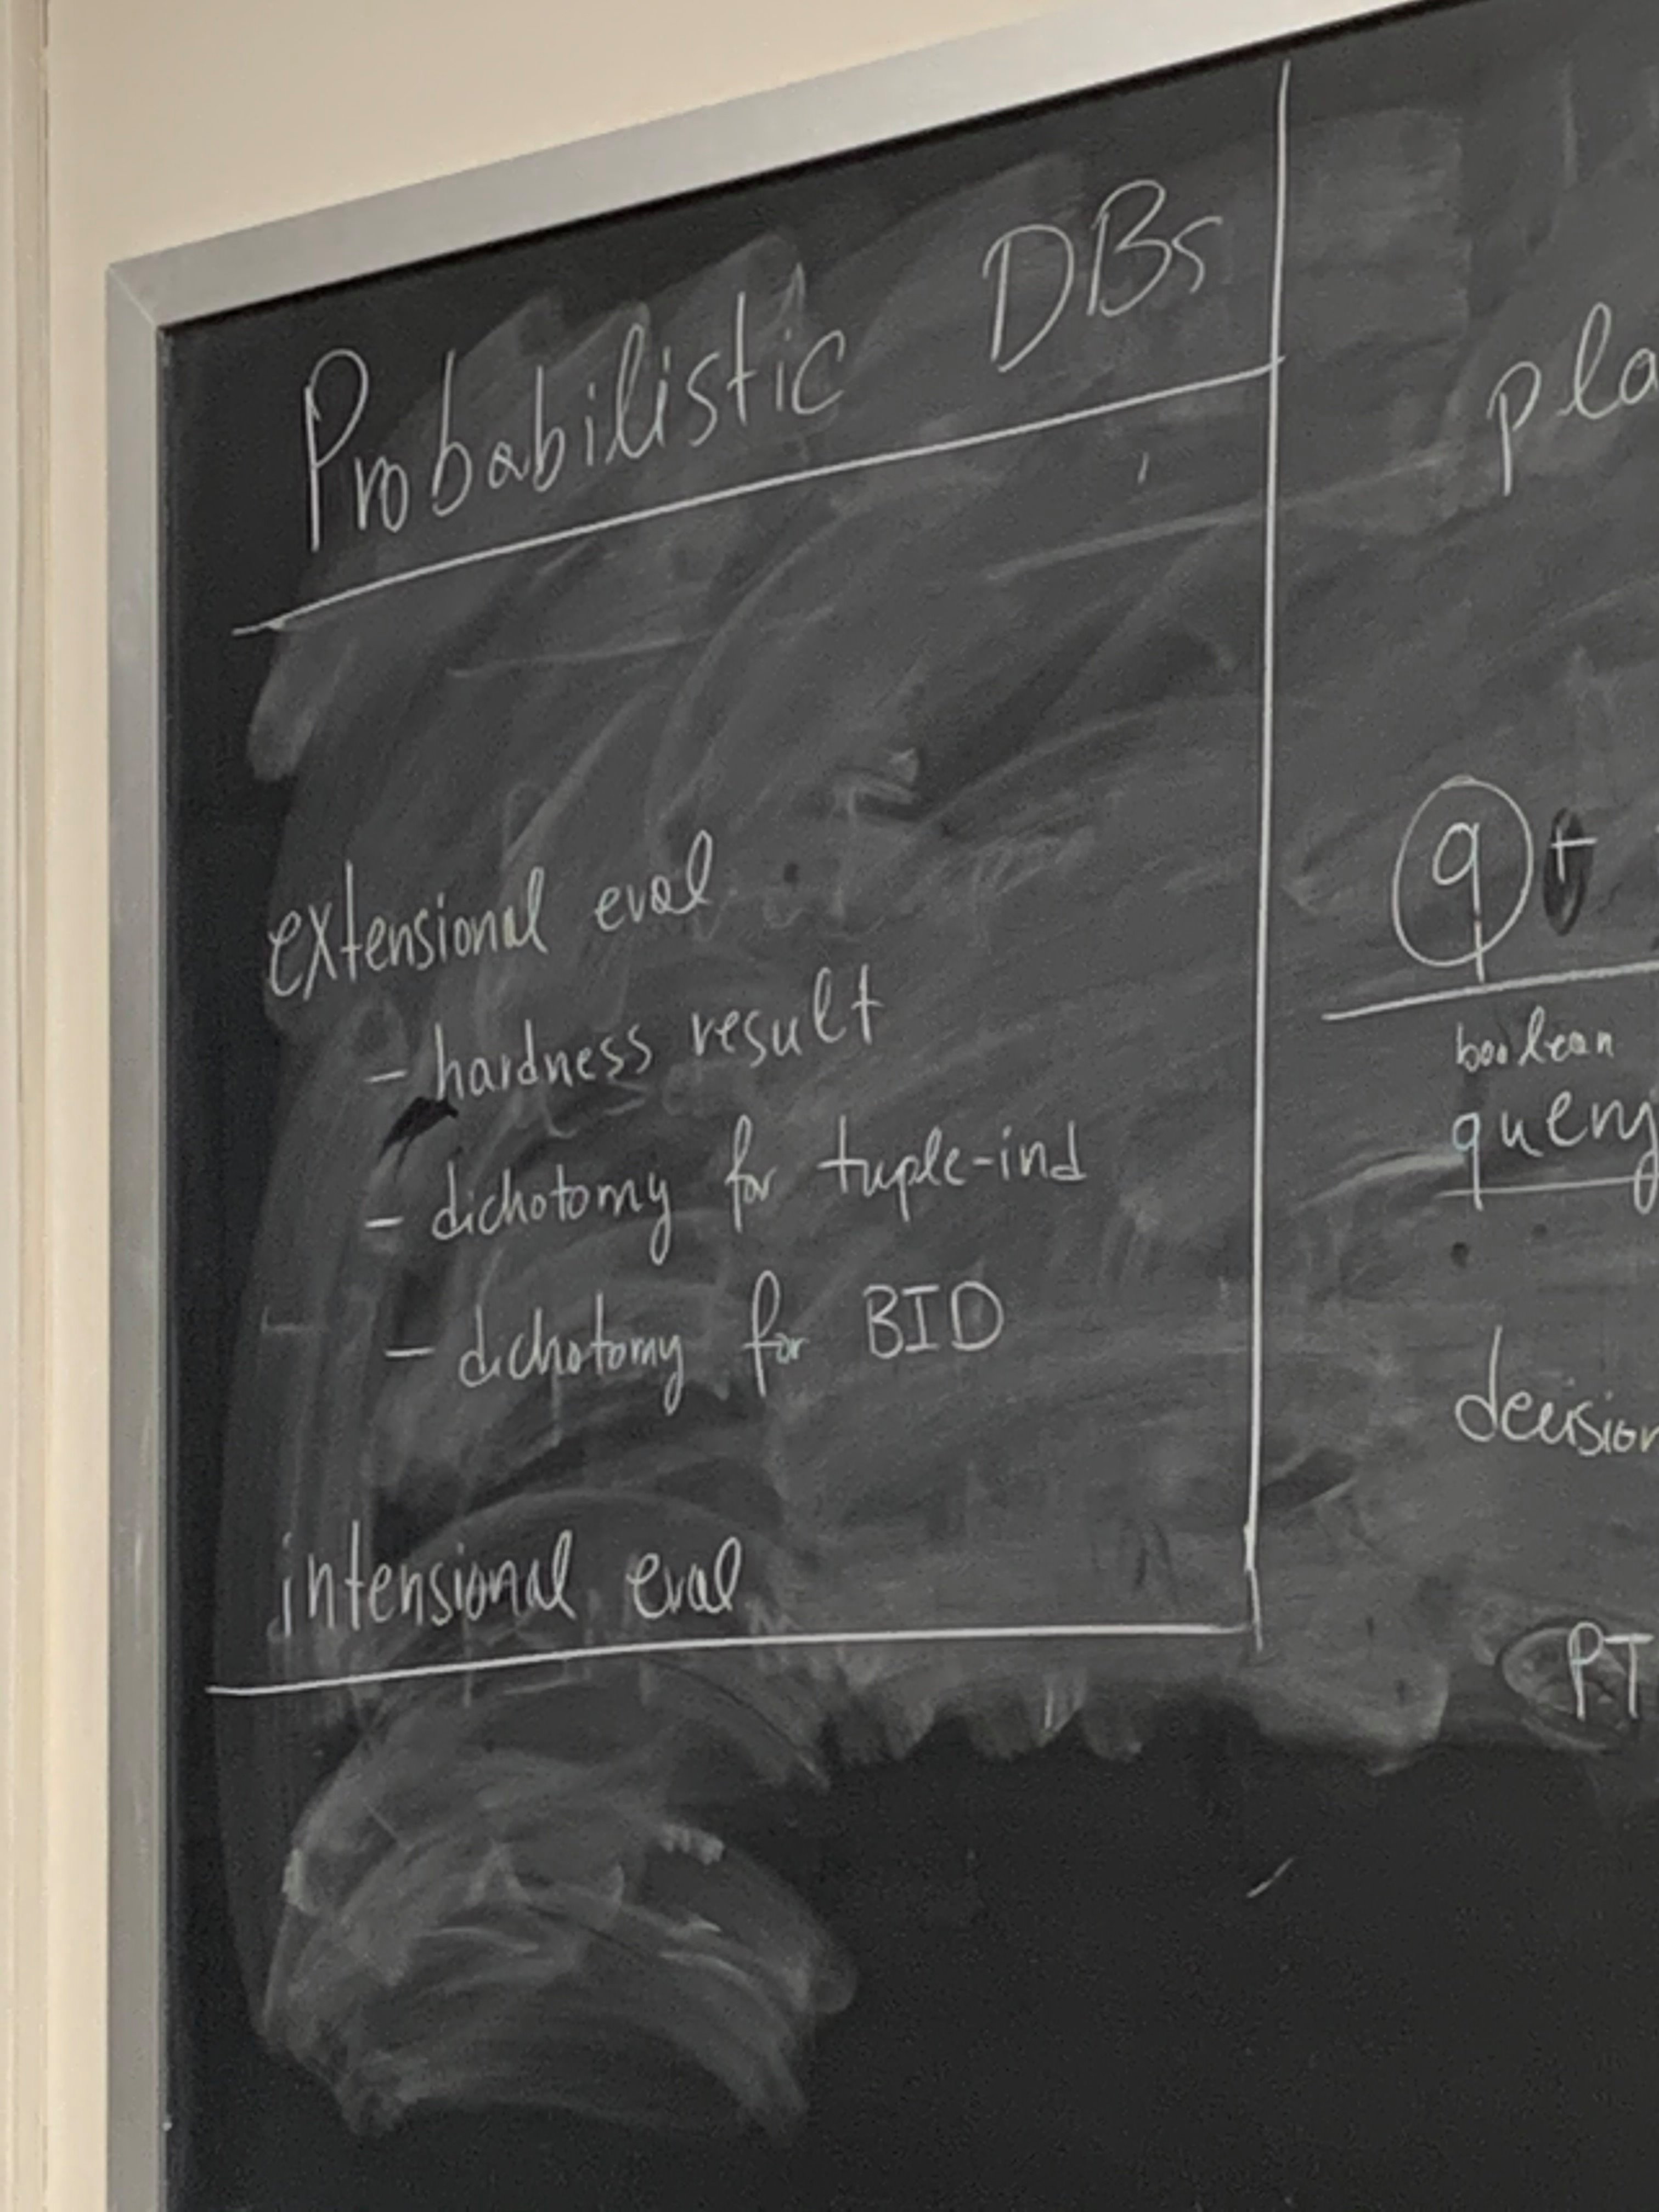 Probabilistic DBs
extensional eval
- hardness result
- dichotomy for tuple-ind
- dichotomy for BID
intensional eval
pla
q +
boolean
query
decision
PT